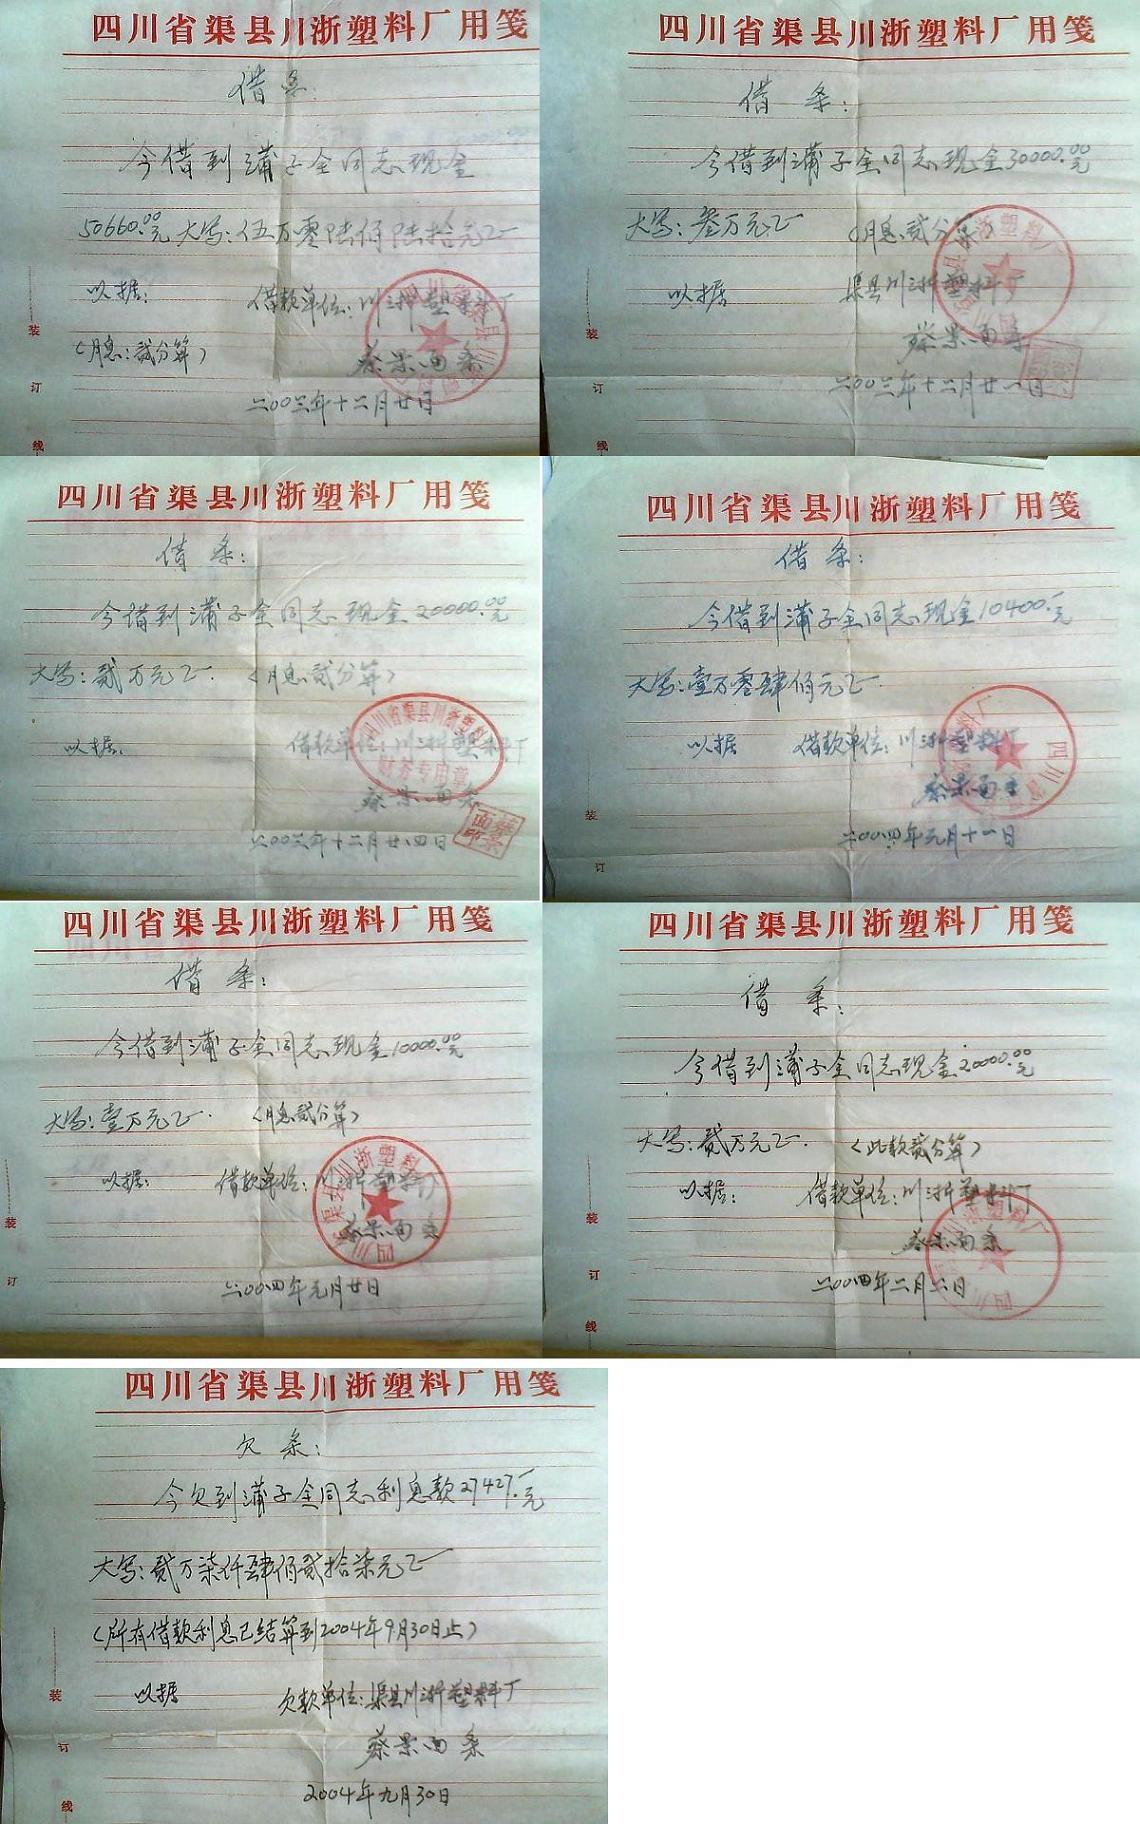 四川省渠县川浙塑料厂用笺
借条:
今借到蒲子全同志现金
50660.00元大写:伍万零陆佰陆拾元正
以据: 借款单位:川浙塑料厂
(月息:贰分算) 蔡景面条
二00三年十二月廿日
装
订
线
四川省渠县川浙塑料厂用笺
借条:
今借到蒲子全同志现金30000.00元
大写:叁万元正 (月息贰分算)
以据 渠县川浙塑料厂
蔡景面条
二00三年十二月廿一日
装
订
线
四川省渠县川浙塑料厂用笺
借条:
今借到蒲子全同志现金20000.00元
大写:贰万元正. (月息贰分算)
以据: 借款单位:川浙塑料厂
四川省渠县川浙塑料厂
财务专用章
蔡景面条
二00三年十二月廿四日
四川省渠县川浙塑料厂用笺
借条:
今借到蒲子全同志现金10400.元
大写:壹万零肆佰元正.
以据 借款单位:川浙塑料厂
蔡景面条
二00四年元月十一日
装
订
四川省渠县川浙塑料厂用笺
借条:
今借到蒲子全同志现金10000.00元
大写:壹万元正. (月息贰分算)
以据: 借款单位:川浙塑料厂
蔡景面条
二00四年元月廿日
装
订
四川省渠县川浙塑料厂用笺
借条:
今借到蒲子全同志现金20000.00元
大写:贰万元正. (此款贰分算)
以据: 借款单位:川浙塑料厂
蔡景面条
二00四年二月二日
装
订
线
四川省渠县川浙塑料厂用笺
欠条:
今欠到蒲子全同志利息款27427.元
大写:贰万柒仟肆佰贰拾柒元正
(所有借款利息已结算到2004年9月30日止)
以据 欠款单位:渠县川浙塑料厂
蔡景面条
2004年九月30日
装
订
线